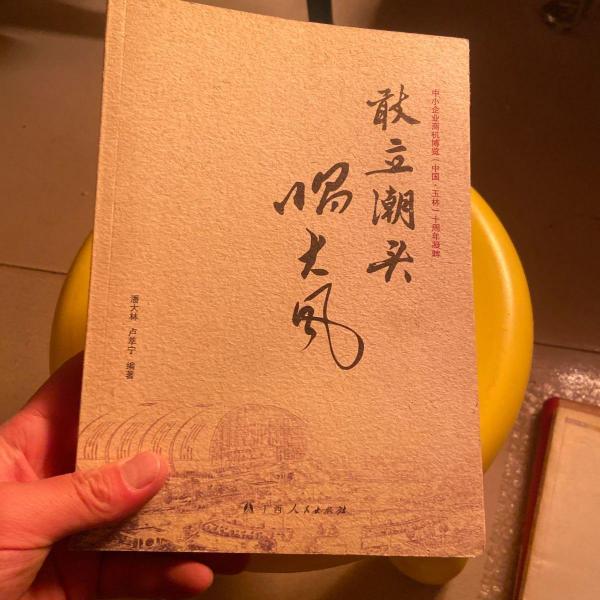 中小企业商机博览(中国·玉林)十周年凝眸
敢立潮头
唱大风
潘大林 卢萃宁 编著
广西人民出版社